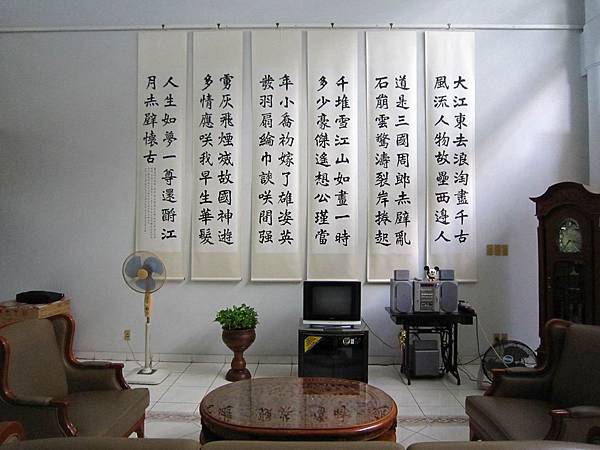 大江東去浪淘盡千古
風流人物故壘西邊人
道是三國周郎赤壁亂
石崩雲驚濤裂岸捲起
千堆雪江山如畫一時
多少豪傑遙想公瑾當
年小喬初嫁了雄姿英
發羽扇綸巾談咲間强
虜灰飛煙滅故國神遊
多情應咲我早生華髮
人生如夢一尊還酹江
月赤壁懷古